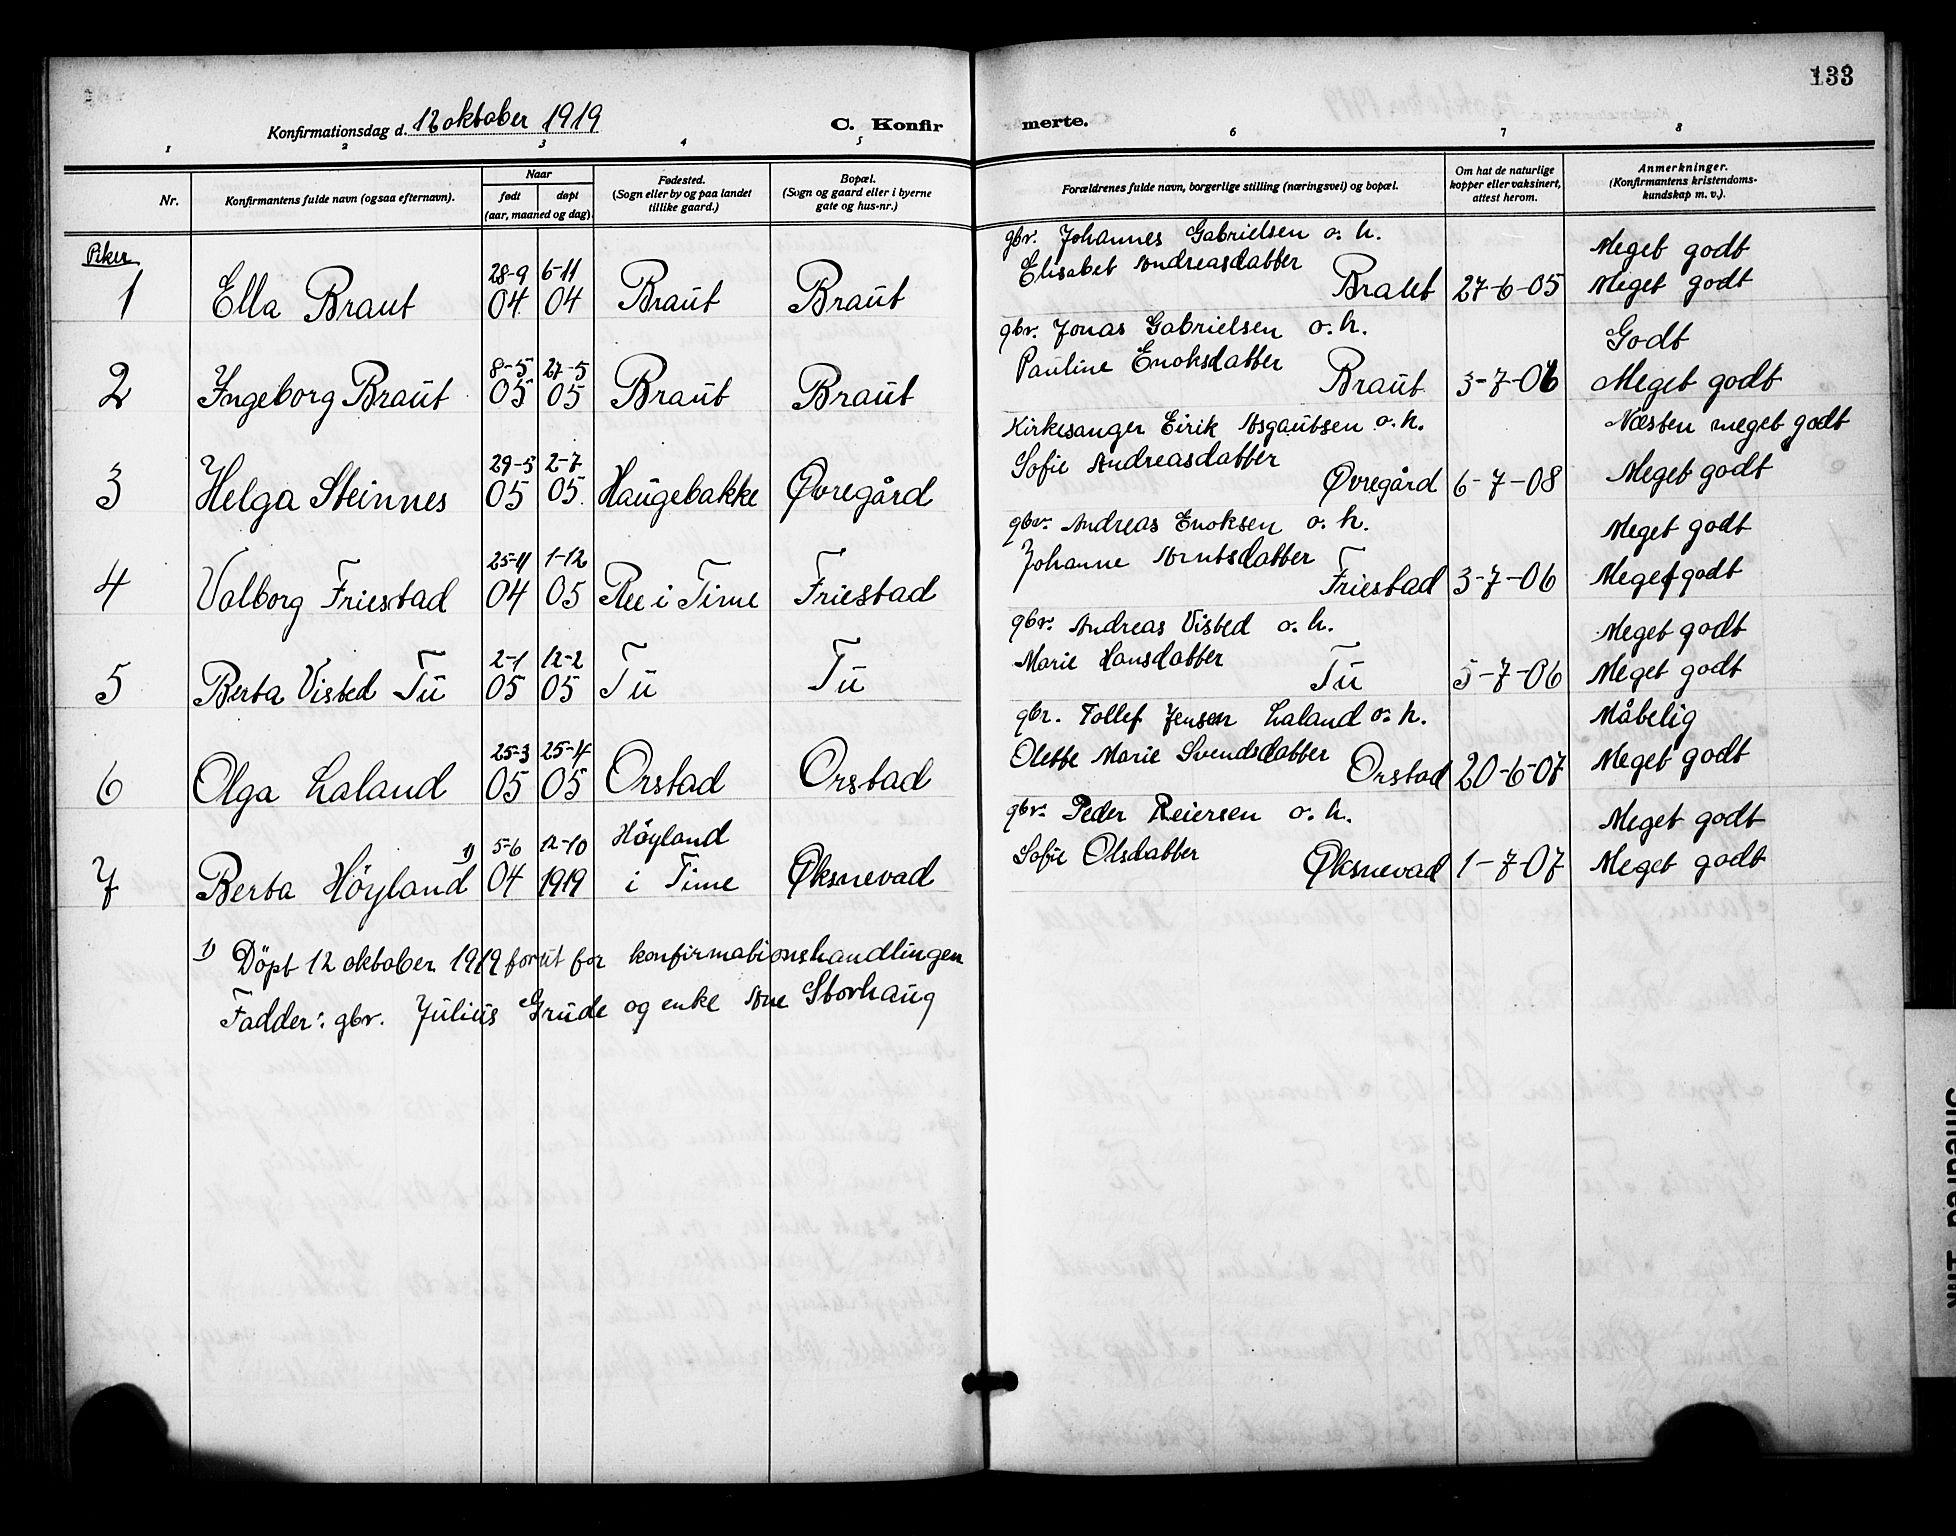 133
Konfirmationsdag d. 12 oktober 1919 C. Konfirmerte.
1 2 3 4 5 6 7 8
Nr. Konfirmantens fulde navn (ogsaa efternavn). Naar født døpt (aar, maaned og dag) Fødested. (Sogn eller by og paa landet tillike gaard.) Bopæl. (Sogn og gaard eller i byerne gate og hus-nr.) Forældrenes fulde navn, borgerlige stilling (næringsvei) og bopæl. Om hat de naturlige kopper eller vaksinert, attest herom. Anmerkninger. (Konfirmantens kristendoms-kundskap m. v.).
Piker
gbr. Johannes Gabrielsen o. h. Meget godt
28-9 6-11 Elisabet Andreasdatter
1 Ella Braut 04 04 Braut Braut Braut 27-6-05 Meget godt
gbr. Jonas Gabrielsen o. h. Godt
8-5 27-5 Pauline Enoksdatter
2 Ingeborg Braut 05 05 Braut Braut Braut 3-7-06 Meget godt
Kirkesanger Eirik Asgautsen o. h. Næsten meget godt
29-5 2-7 Sofie Andreasdatter
3 Helga Steinnes 05 05 Haugebakke Øvregård Øvregård 6-7-08 Meget godt
gbr. Andreas Enoksen o. h. Meget godt
25-11 1-12 Johanne Arntsdatter
4 Valborg Friestad 04 05 Ree i Time Friestad Friestad 3-7-06 Meget godt
gbr. Andreas Visted o. h. Meget godt
2-1 12-2 Marie Hansdatter
5 Berta Visted Tu 05 05 Tu Tu Tu 5-7-06 Meget godt
gbr. Tollef Jensen Laland o. h. Måtelig
25-3 25-4 Olette Marie Svendsdatter
6 Olga Laland 05 05 Orstad Orstad Orstad 20-6-07 Meget godt
gbr. Peder Reiersen o. h. Meget godt
5-6 12-10 Høyland Sofie Olsdatter
7 Berta Høyland 1) 04 1919 i Time Øksnevad Øksnevad 1-7-07 Meget godt
1) Döpt 12 oktober 1919 forut for konfirmationshandlingen
Fadder: gbr. Julius Grude og enke Ane Storhaug